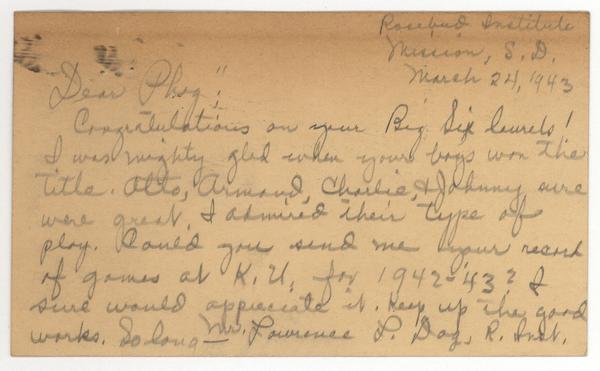 Rosebud Institute
Mission, S.D.
March 24, 1943
Dear "Phog",
Congratulations on your Big Six laurels!
I was mighty glad when your boys won the
title. Otto, Armand, Charlie, & Johnny sure
were great. I admired their type of
play. Could you send me your record
of games at K.U. for 1942-43? I
sure would appreciate it. Keep up the good
works. So long — Mr. Lawrence L. Day, R. Inst.